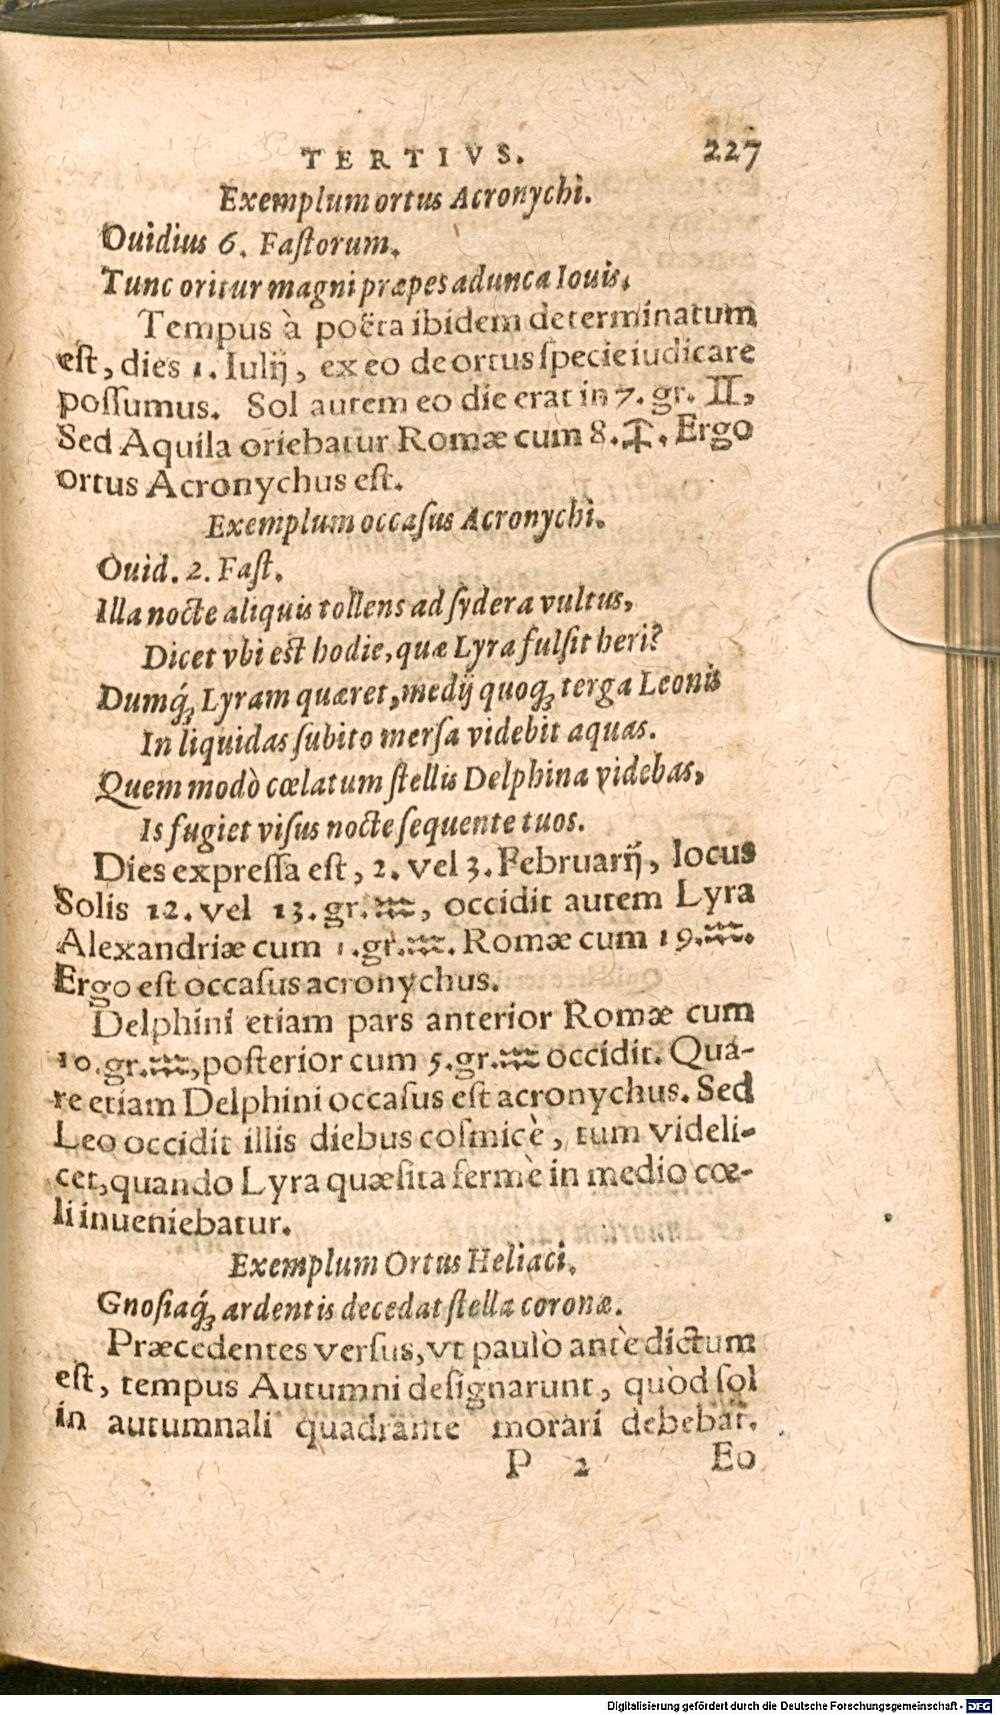 TERTIVS. 227
Exemplum ortus Acronychi.
Ouidius 6. Fastorum.
Tunc oritur magni præpes adunca Iouis.
Tempus à poëta ibidem determinatum
est, dies 1. Iulij, ex eo de ortus specie iudicare
possumus. Sol autem eo die erat in 7. gr. ♊,
Sed Aquila oriebatur Romæ cum 8. ♐. Ergo
ortus Acronychus est.
Exemplum occasus Acronychi.
Ouid. 2. Fast.
Illa nocte aliquis tollens ad sydera vultus,
Dicet vbi est hodie, quæ Lyra fulsit heri?
Dumq́; Lyram quæret, medij quoq; terga Leonis
In liquidas subito mersa videbit aquas.
Quem modò cœlatum stellis Delphina videbas,
Is fugiet visus nocte sequente tuos.
Dies expressa est, 2. vel 3. Februarij, locus
Solis 12. vel 13. gr. ♒, occidit autem Lyra
Alexandriæ cum 1. gr. ♒. Romæ cum 19. ♒.
Ergo est occasus acronychus.
Delphini etiam pars anterior Romæ cum
10. gr. ♒, posterior cum 5. gr. ♒ occidit. Qua-
re etiam Delphini occasus est acronychus. Sed
Leo occidit illis diebus cosmicè, tum videli-
cet, quando Lyra quæsita fermè in medio cœ-
li inueniebatur.
Exemplum Ortus Heliaci.
Gnosiaq́; ardentis decedat stella coronæ.
Præcedentes versus, vt paulò antè dictum
est, tempus Autumni designarunt, quòd sol
in autumnali quadrante morari debebat.
P 2 Eo
Digitalisierung gefördert durch die Deutsche Forschungsgemeinschaft - DFG